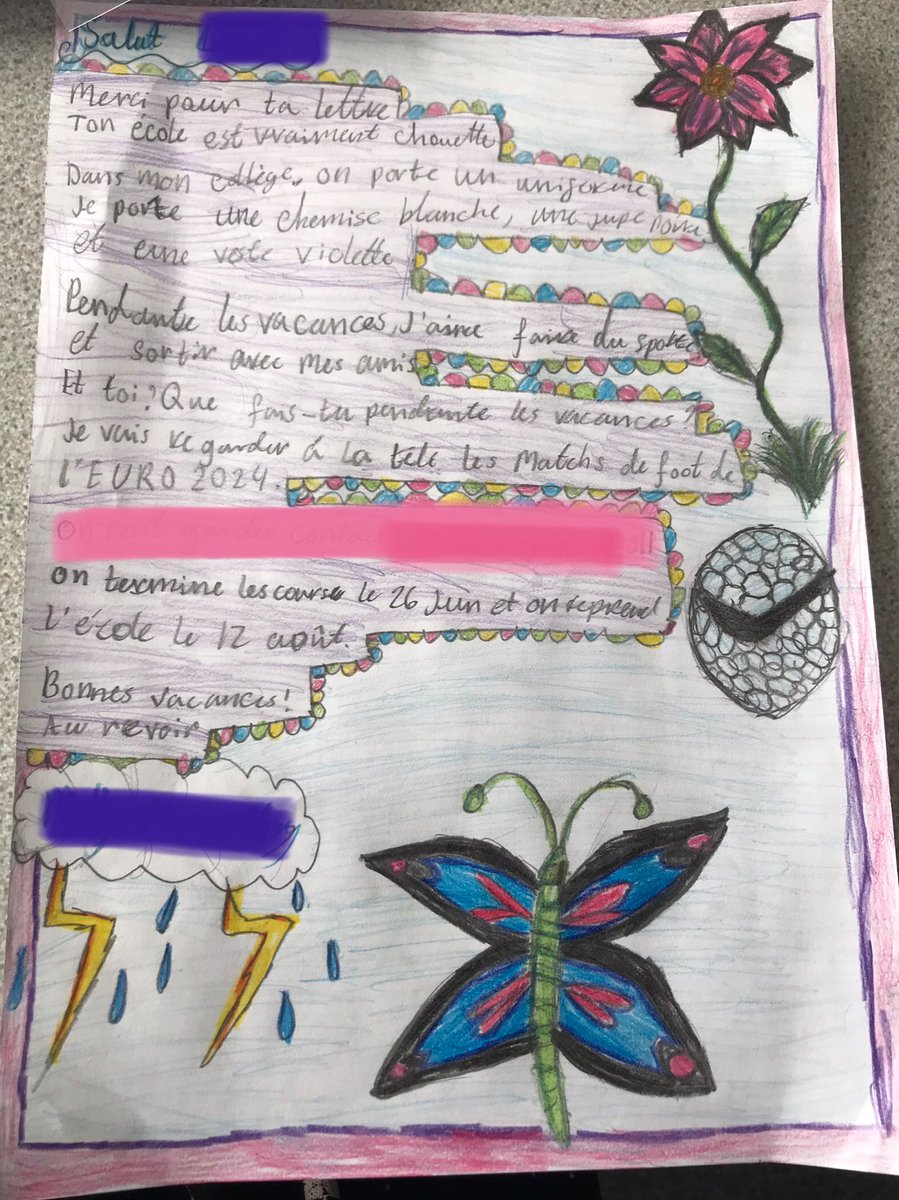 Salut
Merci pour ta lettre
Ton école est vraiment chouette
Dans mon collège, on porte un uniforme
Je porte une chemise blanche, une jupe noire
et eune veste violette
Pendante les vacances, J'aime faire du sporte
et sortir avec mes amis
Et toi? Que fais-tu pendante les vacances?
Je vais regarder à la tele les Matchs de foot de
l'EURO 2024.
On peut garder contac
on termine les course le 26 Jun et on reprend
l'école le 12 août.
Bonnes vacances!
Au revoir